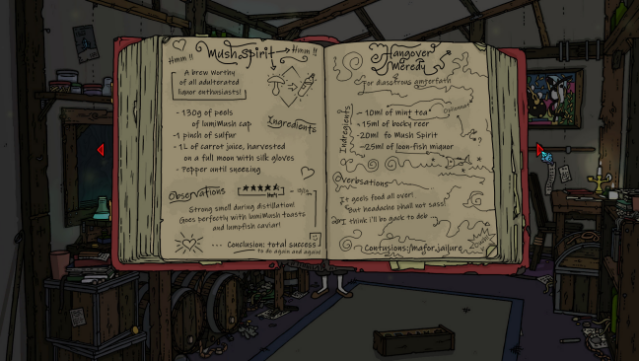 Hmm !!
MushSpirit
Hmm !!
A brew worthy
of all adulterated
liquor enthusiasts!
Ingredients
- 130g of peels
of lumiMush cap
-1 pinch of sulfur
- 1L of carrot juice, harvested
on a full moon with silk gloves
- Pepper until sneezing
Observations
Strong smell during distillation!
Goes perfectly with lumiMush toasts
and lumpfish caviar!
... Conclusion: total success
to do again and again
Hangover
Meredy
For disastrous amterfath
Indregients
- 10ml of mint tea
-15ml of bocky reer
-20ml fo Mush Spirit
-25ml of loon-fish miquor
?
Overbsations
It goels food all over!
But headache shall not sass!
I think i'll be gack to deb ...
Contusions: mafor jailure